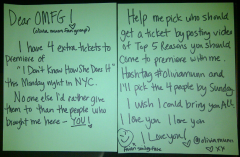 Dear OMFG!
(olivia munn fan group)
I have 4 extra tickets to
premiere of
"I Don't Know How She Does It"
this Monday night in NYC.
No one else I'd rather give
them to than the people who
brought me here — YOU!
Help me pick who should
get a ticket by posting video
of Top 5 Reasons you should
come to premiere with me.
Hashtag #oliviamunn and
I'll pick the 4 people by Sunday.
I wish I could bring you ALL.
I love you I love you
I Love you!
@oliviamunn
XX